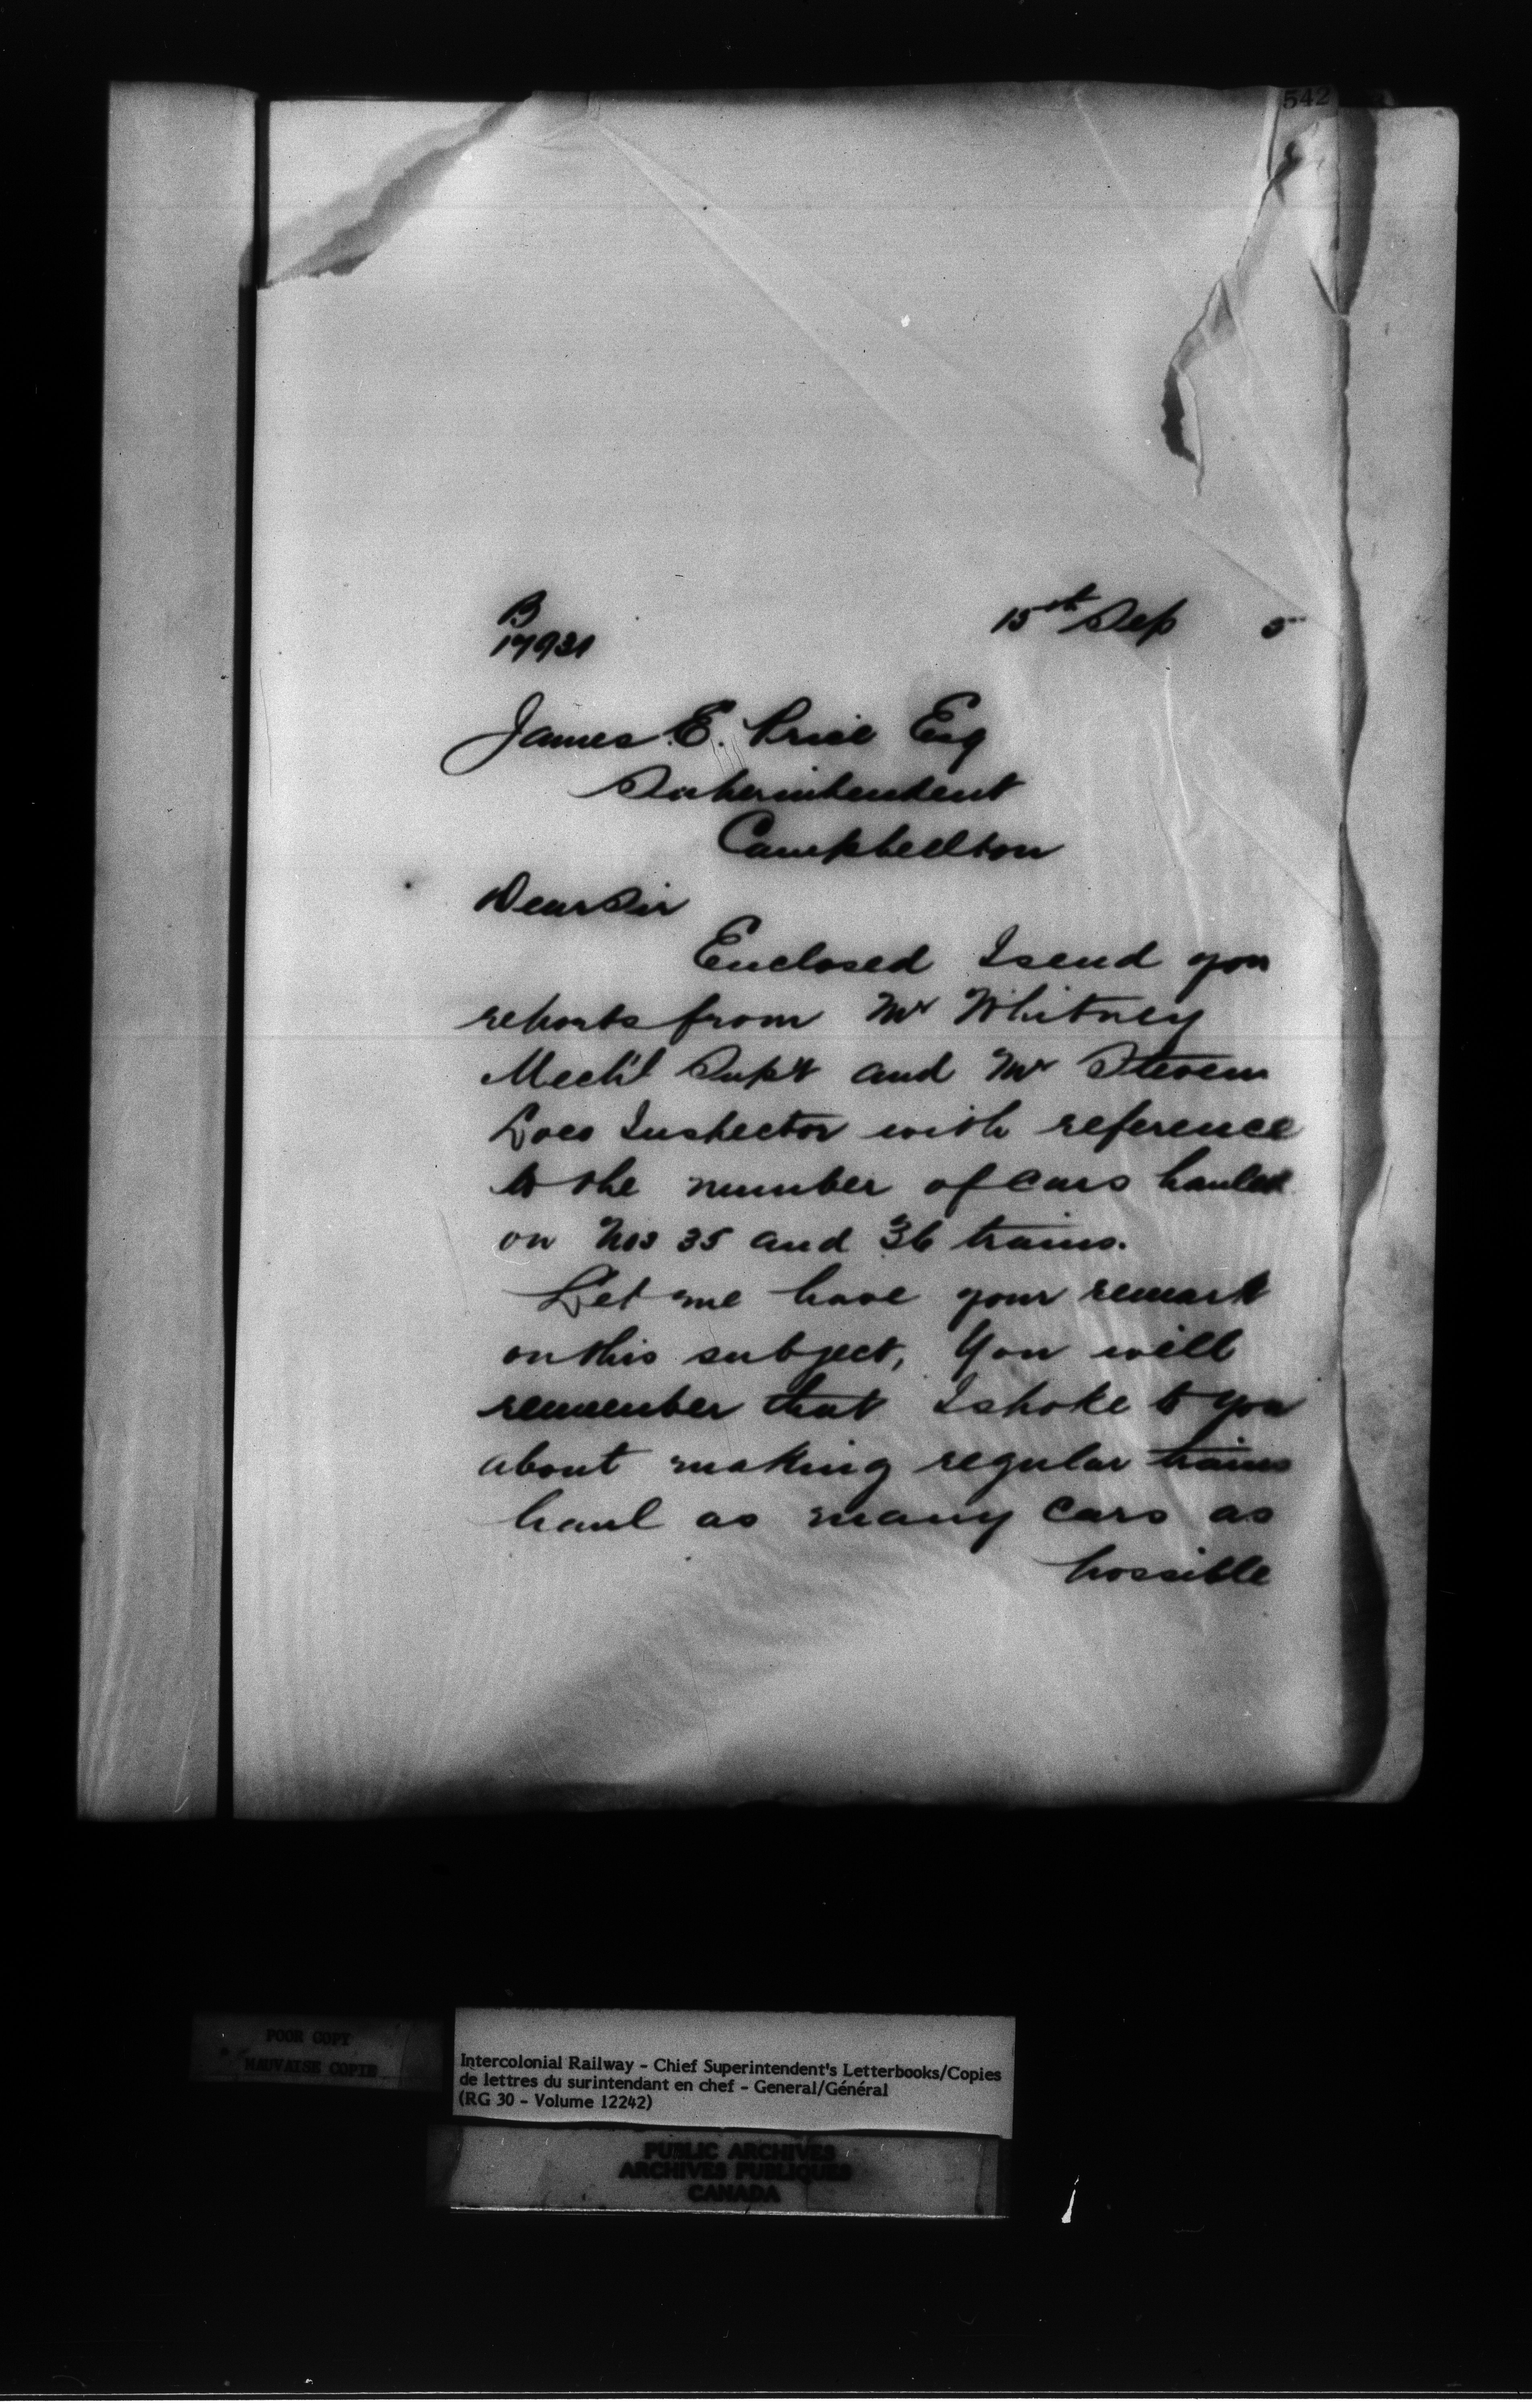 542
B
17931
15th Sep 5
James E. Price Esq
Superintendent
Campbellton
Dear Sir
Enclosed I send you
reports from Mr Whitney
Mech'l Sup't and Mr Steven
Loco Inspector with reference
to the number of cars hauled
on Nos 35 and 36 trains.
Let me have your remark
on this subject, You will
remember that I spoke to you
about making regular trains
haul as many cars as
possible
POOR COPY
MAUVAISE COPIE
Intercolonial Railway - Chief Superintendent's Letterbooks/Copies
de lettres du surintendant en chef - General/Général
(RG 30 - Volume 12242)
PUBLIC ARCHIVES
ARCHIVES PUBLIQUES
CANADA